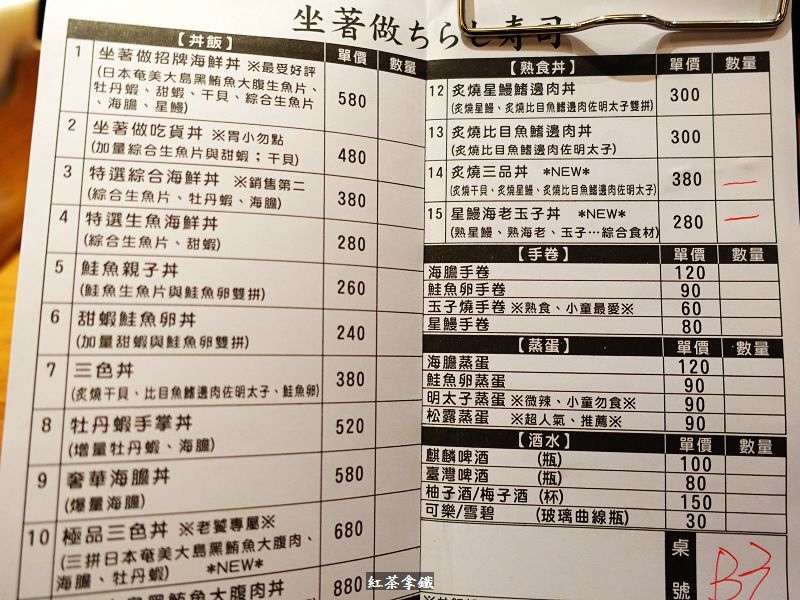 坐著做ちらし寿司
【丼飯】 單價 數量
1 坐著做招牌海鮮丼 ※最受好評 580
(日本奄美大島黑鮪魚大腹生魚片、
牡丹蝦、甜蝦、干貝、綜合生魚片
、海膽、星鰻)
2 坐著做吃貨丼 ※胃小勿點 480
(加量綜合生魚片與甜蝦；干貝)
3 特選綜合海鮮丼 ※銷售第二 380
(綜合生魚片、牡丹蝦、海膽)
4 特選生魚海鮮丼 280
(綜合生魚片、甜蝦)
5 鮭魚親子丼 260
(鮭魚生魚片與鮭魚卵雙拼)
6 甜蝦鮭魚卵丼 240
(加量甜蝦與鮭魚卵雙拼)
7 三色丼 380
(炙燒干貝、比目魚鰭邊肉佐明太子、鮭魚卵)
8 牡丹蝦手掌丼 520
(增量牡丹蝦、海膽)
9 奢華海膽丼 580
(爆量海膽)
10 極品三色丼 ※老饕專屬※ 680
(三拼日本奄美大島黑鮪魚大腹肉、
海膽、牡丹蝦) *NEW*
黑鮪魚大腹肉丼 880
【熟食丼】 單價 數量
12 炙燒星鰻鰭邊肉丼 300
(炙燒星鰻、炙燒比目魚鰭邊肉佐明太子雙拼)
13 炙燒比目魚鰭邊肉丼 300
(炙燒比目魚鰭邊肉佐明太子)
14 炙燒三品丼 *NEW* 380 一
(炙燒干貝、炙燒星鰻、炙燒比目魚鰭邊肉佐明太子)
15 星鰻海老玉子丼 *NEW* 280 一
(熟星鰻、熟海老、玉子…綜合食材)
【手卷】 單價 數量
海膽手卷 120
鮭魚卵手卷 90
玉子燒手卷 ※熟食、小童最愛※ 60
星鰻手卷 80
【蒸蛋】 單價 數量
海膽蒸蛋 120
鮭魚卵蒸蛋 90
明太子蒸蛋 ※微辣、小童勿食※ 90
松露蒸蛋 ※超人氣、推薦※ 90
【酒水】 單價 數量
麒麟啤酒 (瓶) 100
臺灣啤酒 (瓶) 80
柚子酒/梅子酒 (杯) 150
可樂/雪碧 (玻璃曲線瓶) 30
桌號 B7
紅茶拿鐵